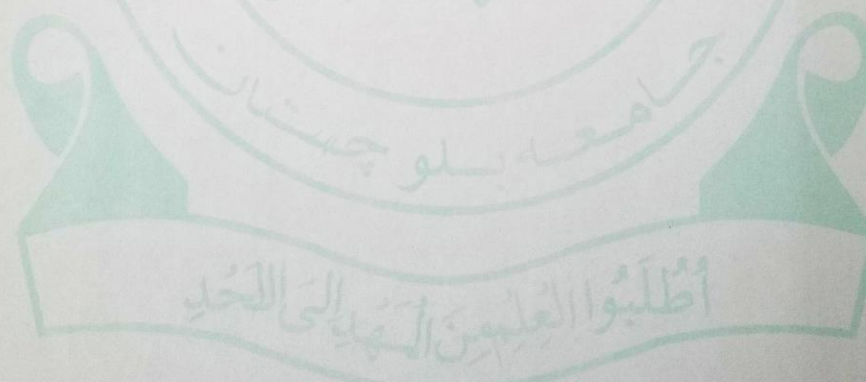 جامعہ بلوچستان
أُطْلُبُوا العِلْمَ مِنَ الْمَهْدِ إِلَى اللَّحْدِ